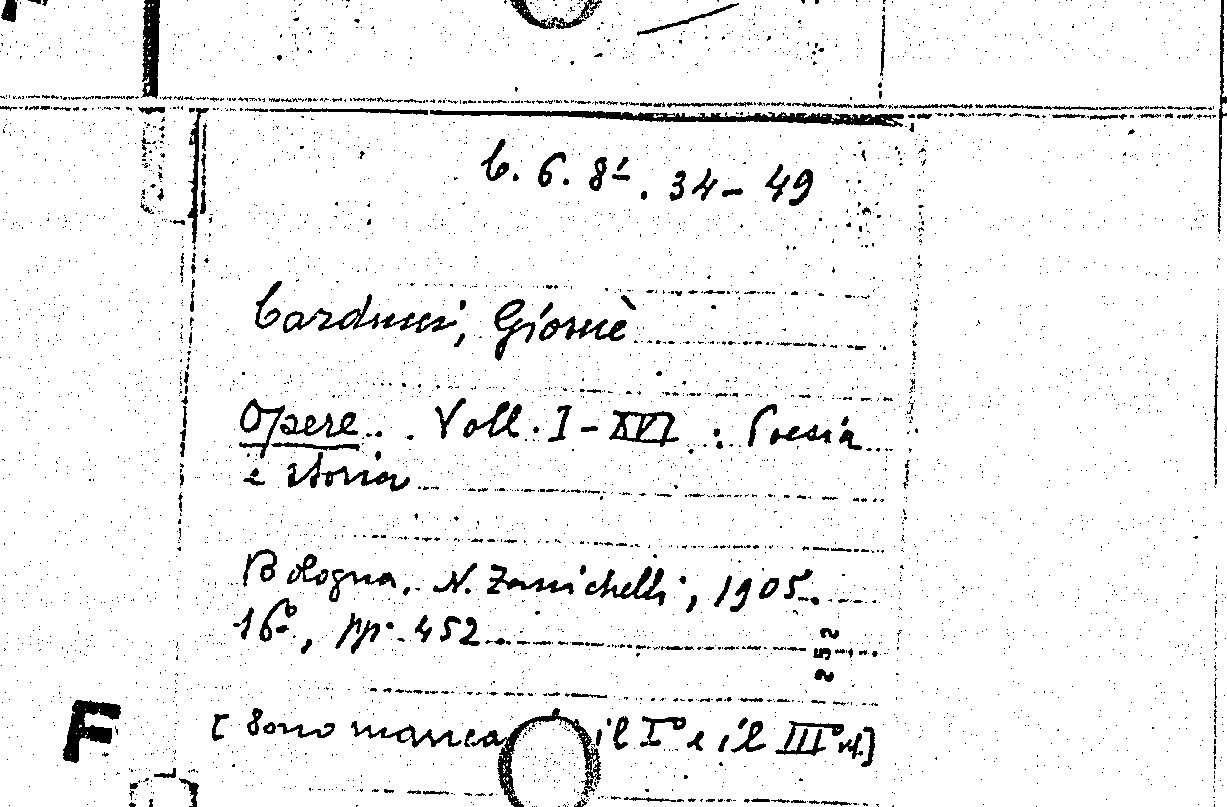 C. 6. 8ª. 34-49
Carducci, Giosuè
Opere. . Voll. I-XVI : Poesia
e storia
Bologna, N. Zanichelli, 1905.
16º, pp. 452
252
F
[Sono il Iº e il IIIº v.]